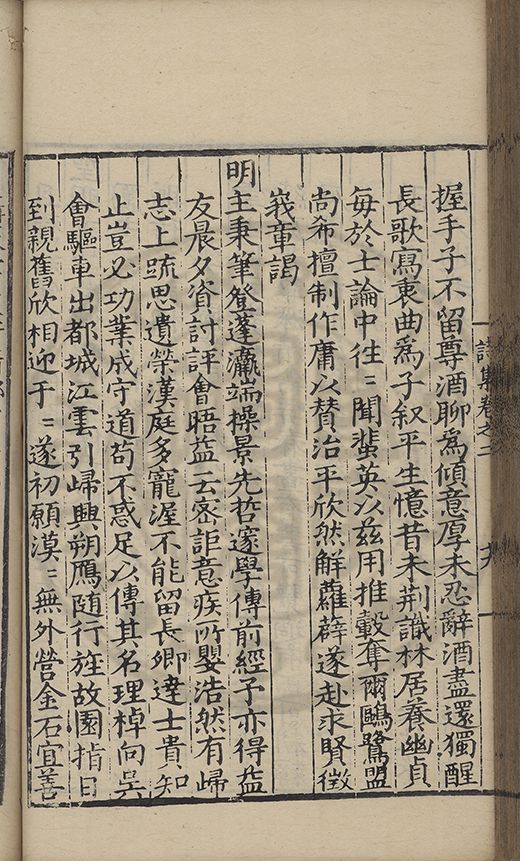 詩集卷之二
握手子不留尊酒聊爲傾意厚未忍辭酒盡還獨醒
長歌寫衷曲爲子叙平生憶昔未荆識林居養幽貞
每於士論中往〻聞蜚英以兹用推轂奪爾鷗鷺盟
尚希擅制作庸以賛治平欣然觧蘿薜遂赴求賢徵
峩章謁
明主秉筆登蓬瀛端操景先哲邃學傳前經予亦得益
友晨夕資討評會晤益云密詎意疾所嬰浩然有歸
志上疏思遺榮漢庭多寵渥不能留長卿達士貴知
止豈必功業成守道苟不惑足以傳其名理棹向吳
會驅車出都城江雲引歸興朔鴈随行旌故園指日
到親舊欣相迎于〻遂初願漠〻無外營金石宜善